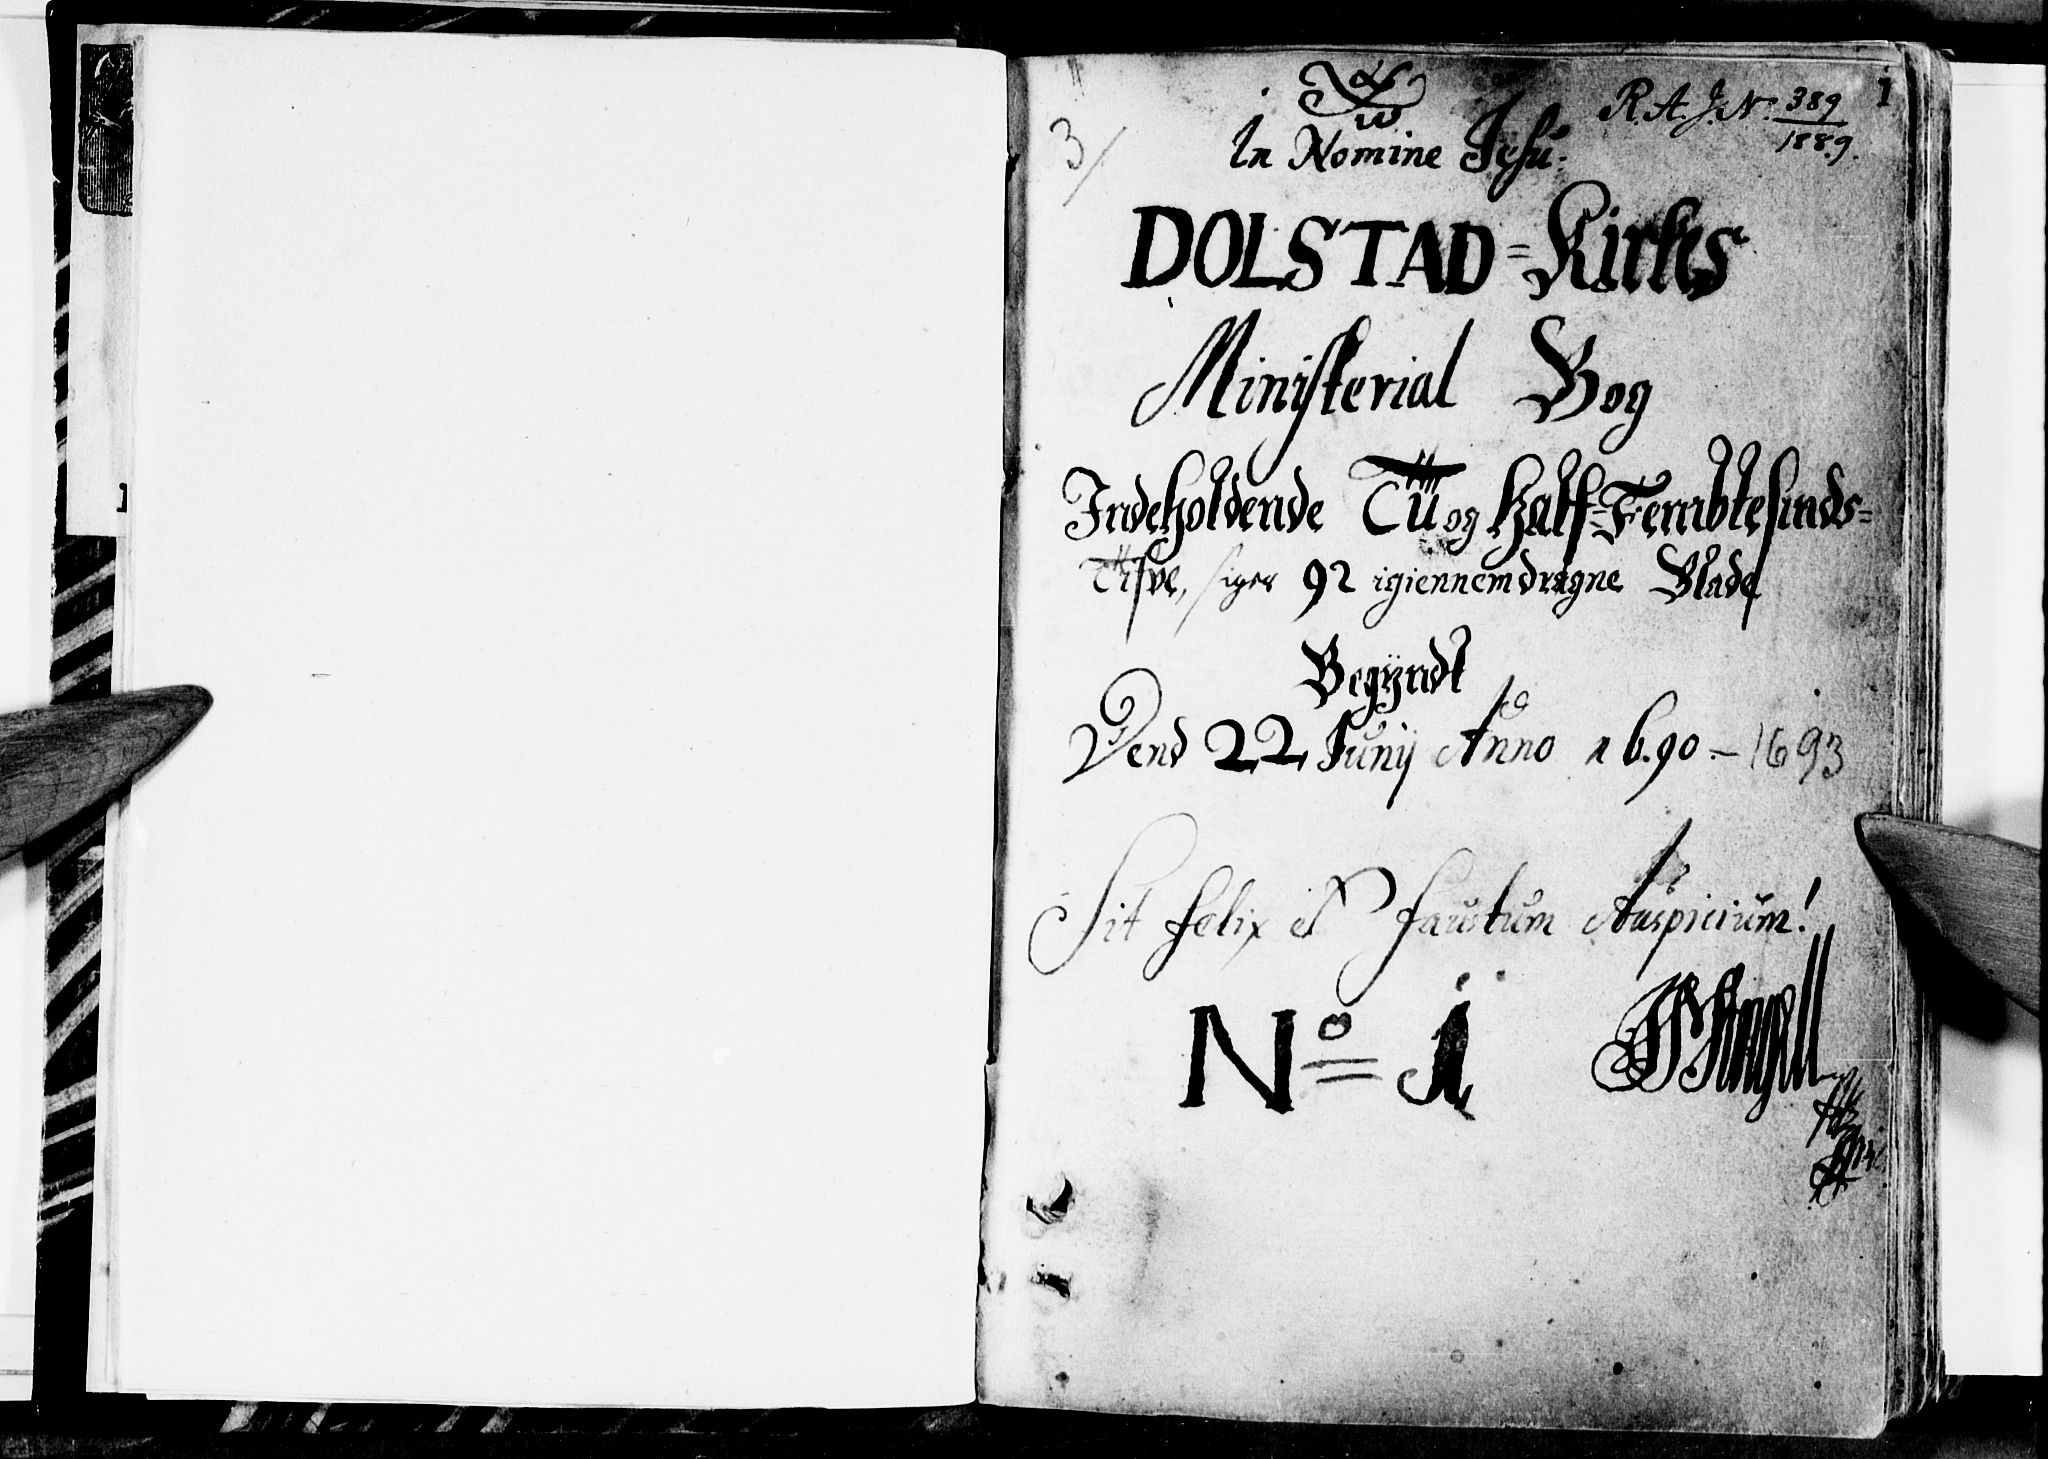 R. A. J. N. 389/1889.
1
3/
α ω
In Nomine Jesu:
DOLSTAD=Kirkes
Ministerial Bog
Indeholdende Tü og Half=Fembtesinds=
Tifve, siger 92 igiennemdragne Blade
Begÿndt
Dend 22 Junij Anno 1690.–1693
Sit felix et faustum Auspicium!
No= 1
Angell